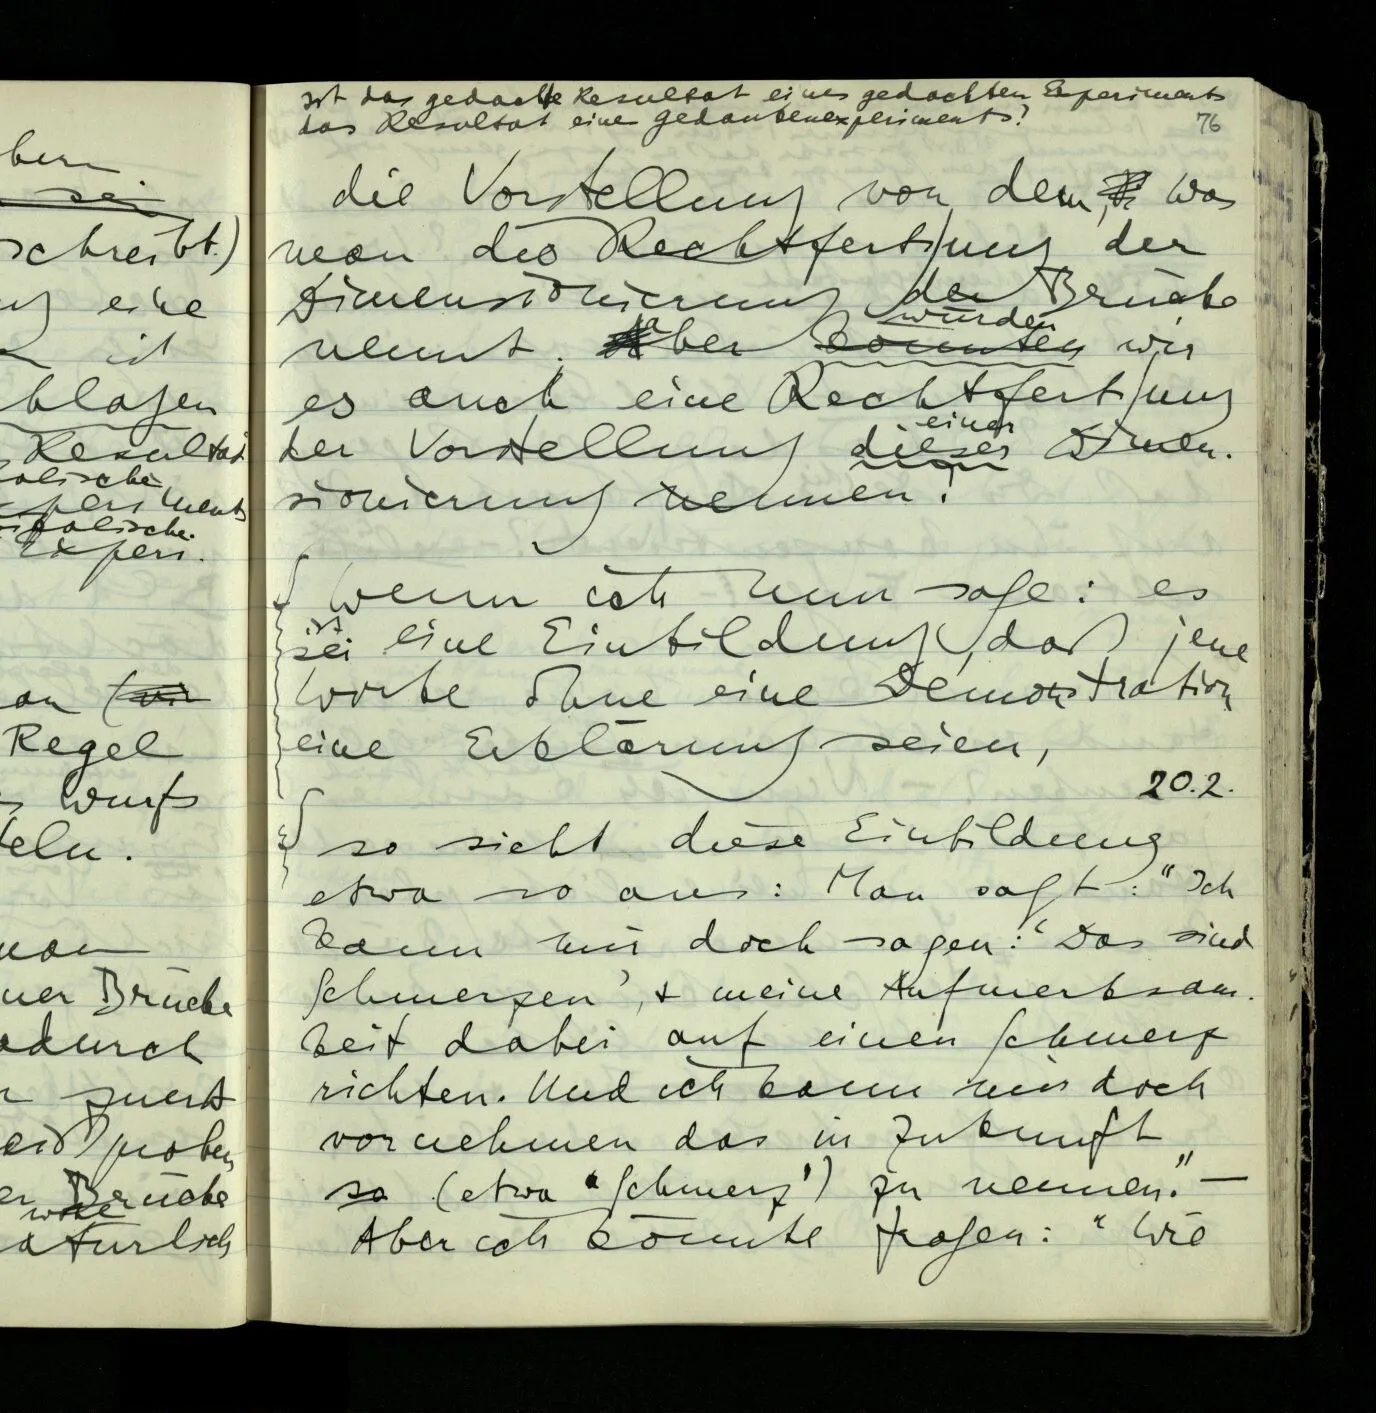 bern
sei
schreibt.)
eine
ist
Resultat
Experi.
Regel
Wurfs
teln.
Brücke
adurch
zuerst
proben
Brücke
wäre
Ist das gedachte Resultat eines gedachten Experiments
das Resultat eines Gedankenexperiments?
76
die Vorstellung von dem, was
man die Rechtfertigung der
Dimensionierung der Brücke
nennt. aber
würden
könnten wir
es auch eine Rechtfertigung
der Vorstellung
einer
dieser Dimen-
sionierung nennen?
Wenn ich nun sage: es
ist
sei eine Einbildung, daß jene
Worte ohne eine Demonstration
eine Erklärung seien,
20.2.
so sieht diese Einbildung
etwa so aus: Man sagt: "Ich
kann mir doch sagen: 'Das sind
Schmerzen', & meine Aufmerksam-
keit dabei auf einen Schmerz
richten. Und ich kann mir doch
vornehmen das in Zukunft
so (etwa 'Schmerz') zu nennen." —
Aber ich könnte fragen: "Wie